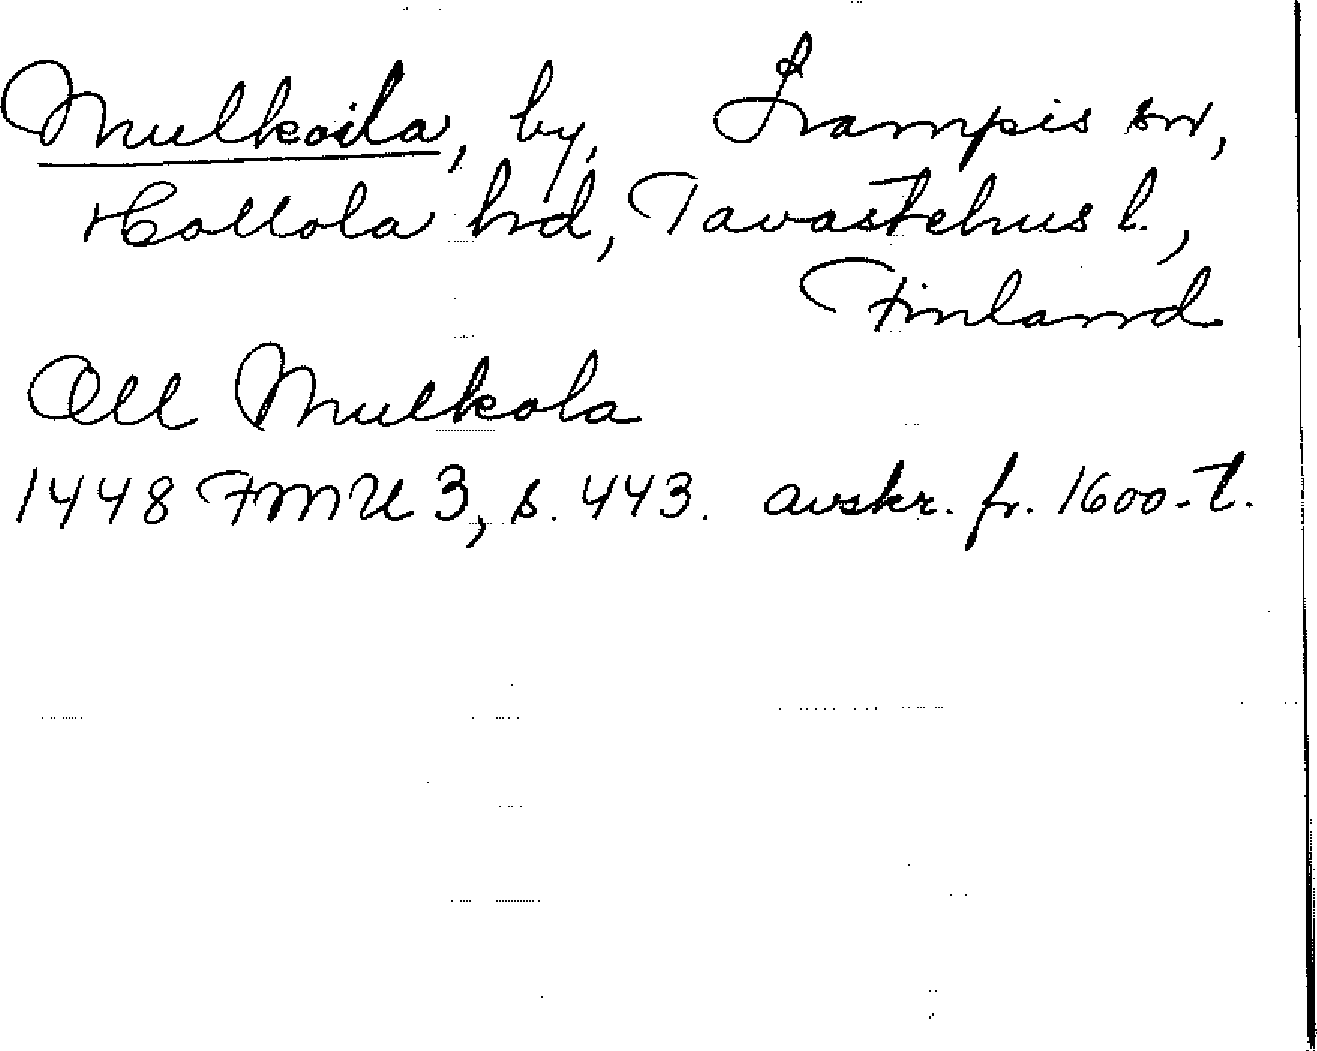 Mulkoila, by, Lampis sn,
Hollola hrd, Tavastehus l.,
Finland
All Mulkola
1448 FMU 3, s. 443. avskr. fr. 1600-t.